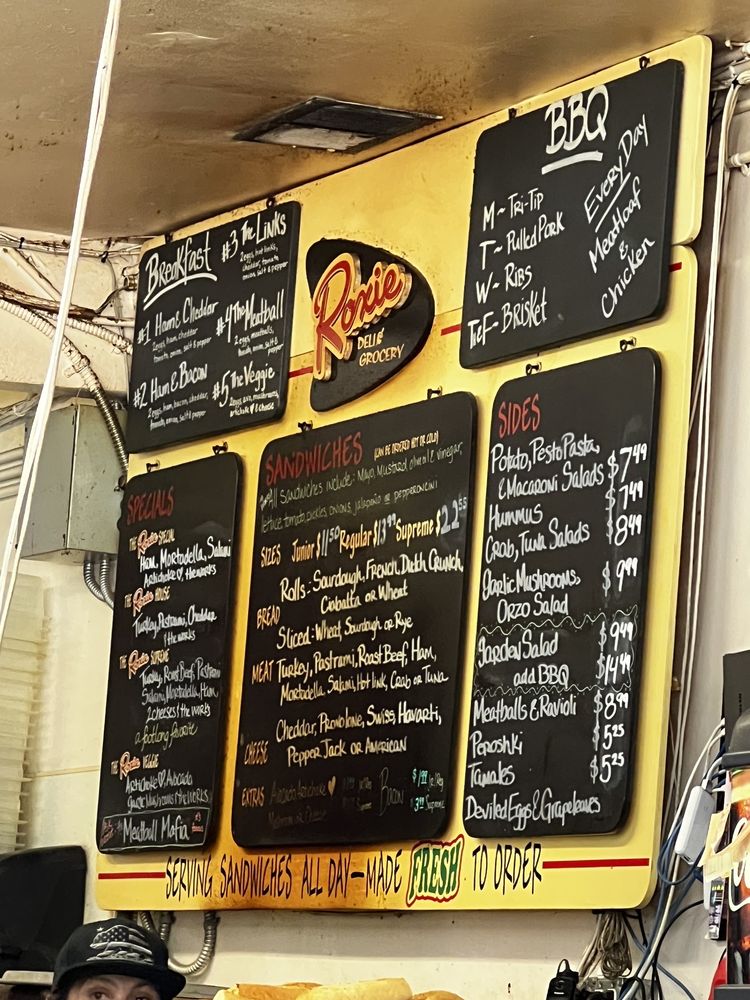 Breakfast
#1 Ham & Cheddar
2 eggs, ham, cheddar
tomato, onion, salt & pepper
#2 Ham & Bacon
2 eggs, ham, bacon, cheddar,
tomato, onion, salt & pepper
#3 The Links
2 eggs, hot links,
cheddar, tomato
onion, salt & pepper
#4 The Meatball
2 eggs, meatballs,
tomato, onion, salt &
pepper
#5 The Veggie
2 eggs, avo, mushrooms,
artichoke ♡ & cheese
Roxie
DELI &
GROCERY
BBQ
M~ Tri-Tip
T~ Pulled Pork
W~ Ribs
T&F- Brisket
Every Day
Meatloaf
&
Chicken
SPECIALS
THE Roxie SPECIAL
Ham, Mortadella, Salami
Artichoke ♡, theworks
THE Roxie HOUSE
Turkey, Pastrami, Cheddar
& the works
THE Roxie SUPREME
Turkey, Roast Beef, Pastrami
Salami, Mortadella, Ham,
2 cheeses & the works
a footlong favorite
THE Roxie VEGGIE
Artichoke ♡, Avocado
Garlic Mushrooms & the works
Meatball Mafia
SANDWICHES (CAN BE ORDERED HOT OR COLD)
All sandwiches include: Mayo, Mustard, olive oil & vinegar,
lettuce, tomato, pickles, onions, jalapeño or pepperoncini
SIZES Junior $11.50 Regular $13.99 Supreme $22.55
BREAD Rolls: Sourdough, French, Dutch Crunch,
Ciabatta or Wheat
Sliced: Wheat, Sourdough or Rye
MEAT Turkey, Pastrami, Roast Beef, Ham,
Mortadella, Salami, Hot link, Crab or Tuna
CHEESE Cheddar, Provolone, Swiss, Havarti,
Pepper Jack or American
EXTRAS Avocado, Artichoke ♡
Mushroom or Cheese
Bacon $1.99 Jr/Reg
3.99 Supreme
SIDES
Potato, Pesto Pasta,
& Macaroni Salads $7.49
Hummus $7.49
Crab, Tuna Salads $8.49
Garlic Mushrooms, $9.99
Orzo Salad
Garden Salad $9.49
add BBQ $14.49
Meatballs & Ravioli $8.99
Piroshki $5.25
Tamales $5.25
Deviled Eggs & Grapeleaves
SERVING SANDWICHES ALL DAY—MADE FRESH TO ORDER